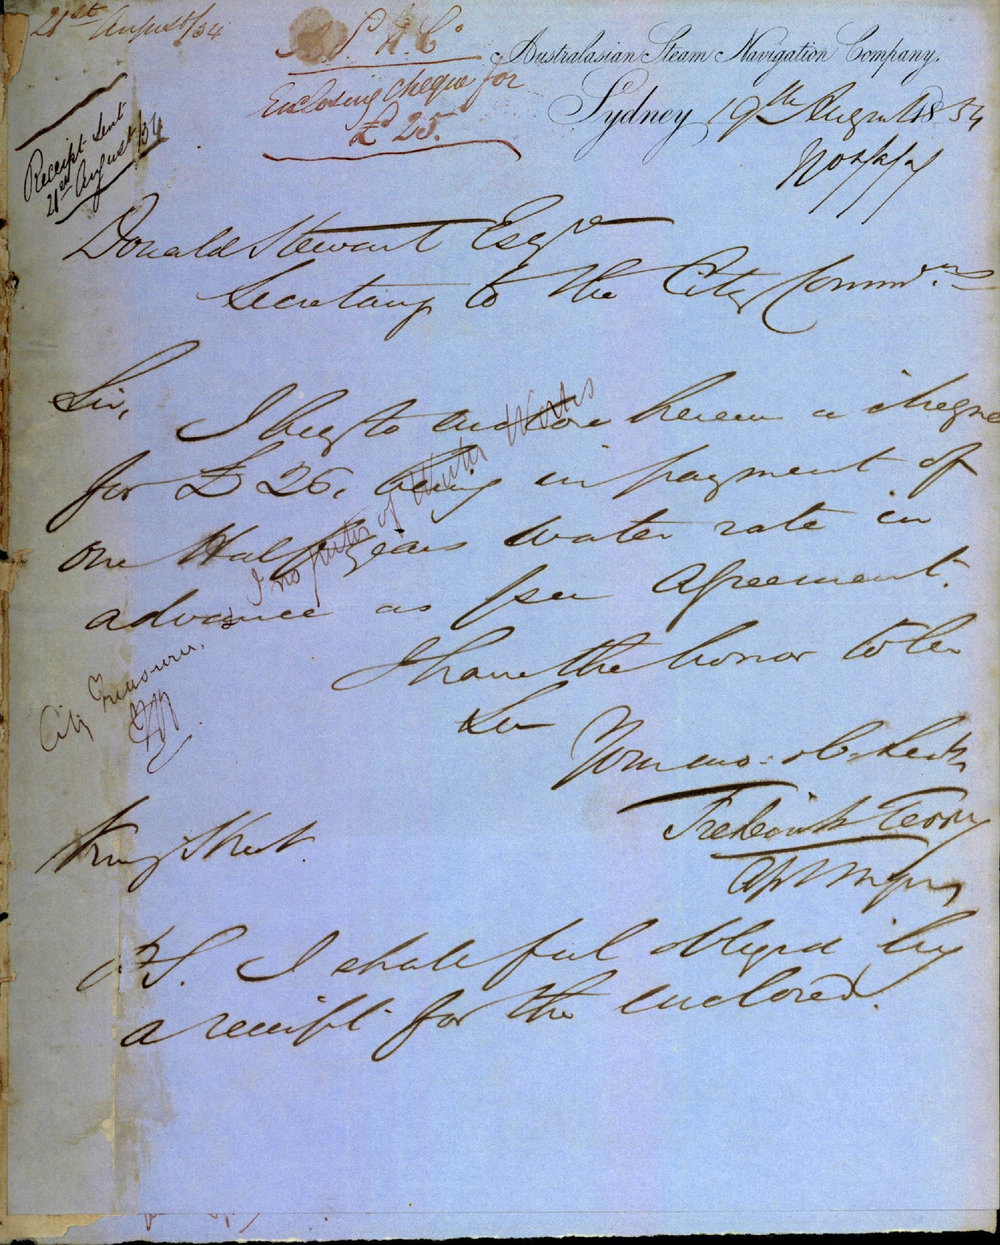 21st August/54
A. S. N. Co.
Enclosing cheque for
£25.
Receipt sent
21st August/54
Australasian Steam Navigation Company.
Sydney 19th August 1854
Donald Stewart Esqr
Secretary to the City Commrs
Sir,
I beg to enclose herein a cheque
for £26, being in payment of
one Half years water rate in
advance as per Agreement.
I have the honor to be
Sir
Your mo: obt Servt
Frederick Terry
King Street
P.S. I shall feel obliged by
a receipt for the enclosed.
City Treasurer,
Inspector of Water Works